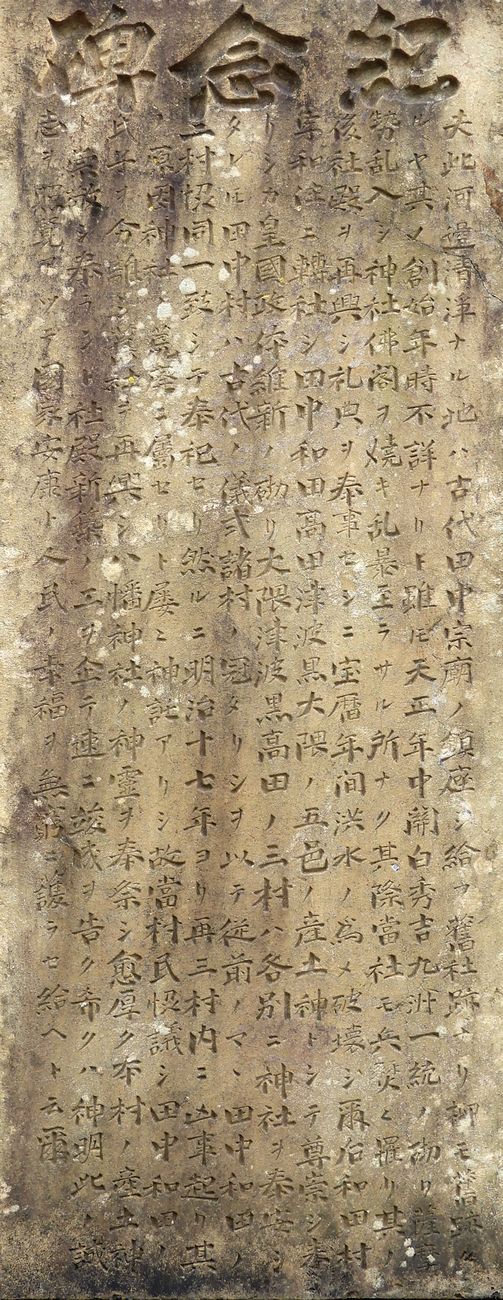 記念碑
夫此河邊清浄ナル地ハ古代田中宗廟ノ鎮座シ給フ舊社跡ナリ抑モ舊跡タ
ルヤ其ノ創始年時不詳ナリト雖モ天正年中關白秀吉九洲一統ノ砌リ薩摩
勢乱入シ神社佛閣ヲ焼キ乱暴至ラサル所ナク其際當社モ兵燹ニ罹リ其ノ
後社殿ヲ再興シ礼典ヲ奉事セシニ宝暦年间洪水ノ為メ破壊シ爾后和田村
字和住ニ轉社シ田中和田高田津波黒大隈ノ五邑ノ産土神トシテ尊崇シ奉
リシカ皇國政体維新ノ砌リ大隈津波黒高田ノ三村ハ各別ニ神社ヲ奉安シ
タレル田中村ハ古代ノ儀式諸村ノ冠タリシヲ以テ従前ノマヽ田中和田ノ
二村恊同一致シテ奉祀セリ然ルニ明治十七年ヨリ再三村内ニ凶事起リ其
ノ原因神社ノ荒廃ニ属セリト屡々神託アリシ故當村民恊議シ田中和田ノ
氏子ヲ分離シ舊社ヲ再興シ八幡神社ノ神霊ヲ奉祭シ愈厚ク本村ノ産土神
ト崇敬シ奉ラント社殿新築ノ工ヲ企テ速ニ竣成ヲ告ク希クハ神明此ノ誠
志ヲ照覧マシテ國家安康ト人民ノ幸福ヲ無窮ニ護ラセ給ヘト云爾